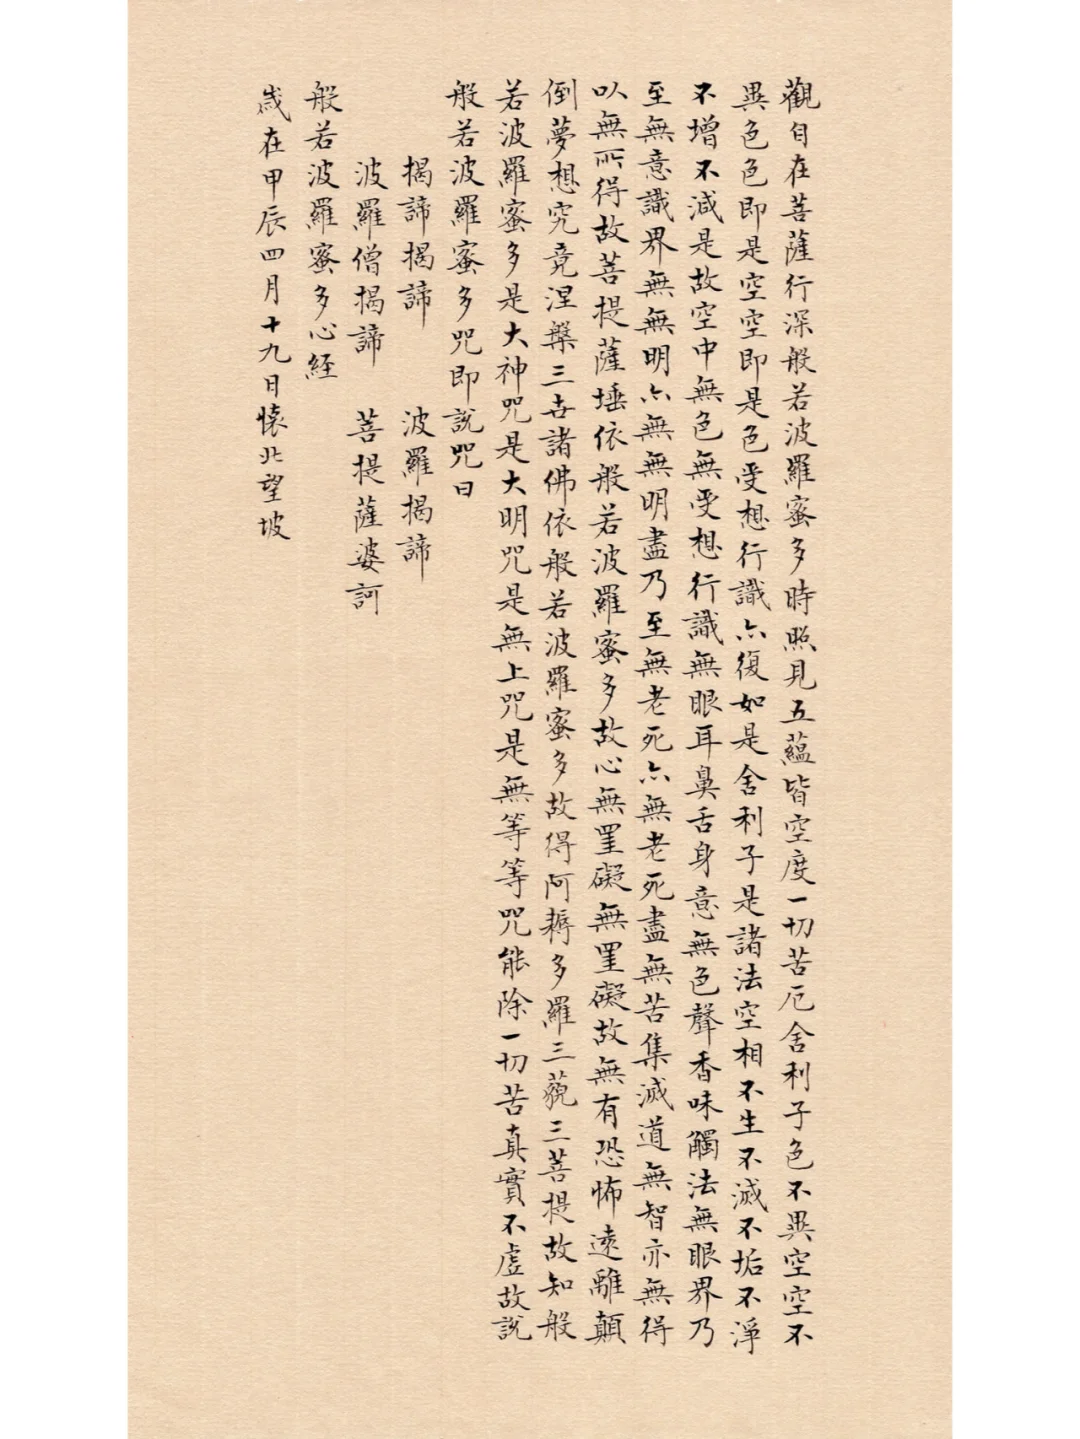 觀自在菩薩行深般若波羅蜜多時照見五蘊皆空度一切苦厄舍利子色不異空空不
異色色即是空空即是色受想行識亦復如是舍利子是諸法空相不生不滅不垢不淨
不增不減是故空中無色無受想行識無眼耳鼻舌身意無色聲香味觸法無眼界乃
至無意識界無無明亦無無明盡乃至無老死亦無老死盡無苦集滅道無智亦無得
以無所得故菩提薩埵依般若波羅蜜多故心無罣礙無罣礙故無有恐怖遠離顛
倒夢想究竟涅槃三世諸佛依般若波羅蜜多故得阿耨多羅三藐三菩提故知般
若波羅蜜多是大神咒是大明咒是無上咒是無等等咒能除一切苦真實不虛故說
般若波羅蜜多咒即說咒曰
揭諦揭諦 波羅揭諦
波羅僧揭諦 菩提薩婆訶
般若波羅蜜多心経
歲在甲辰四月十九日懷北望坡